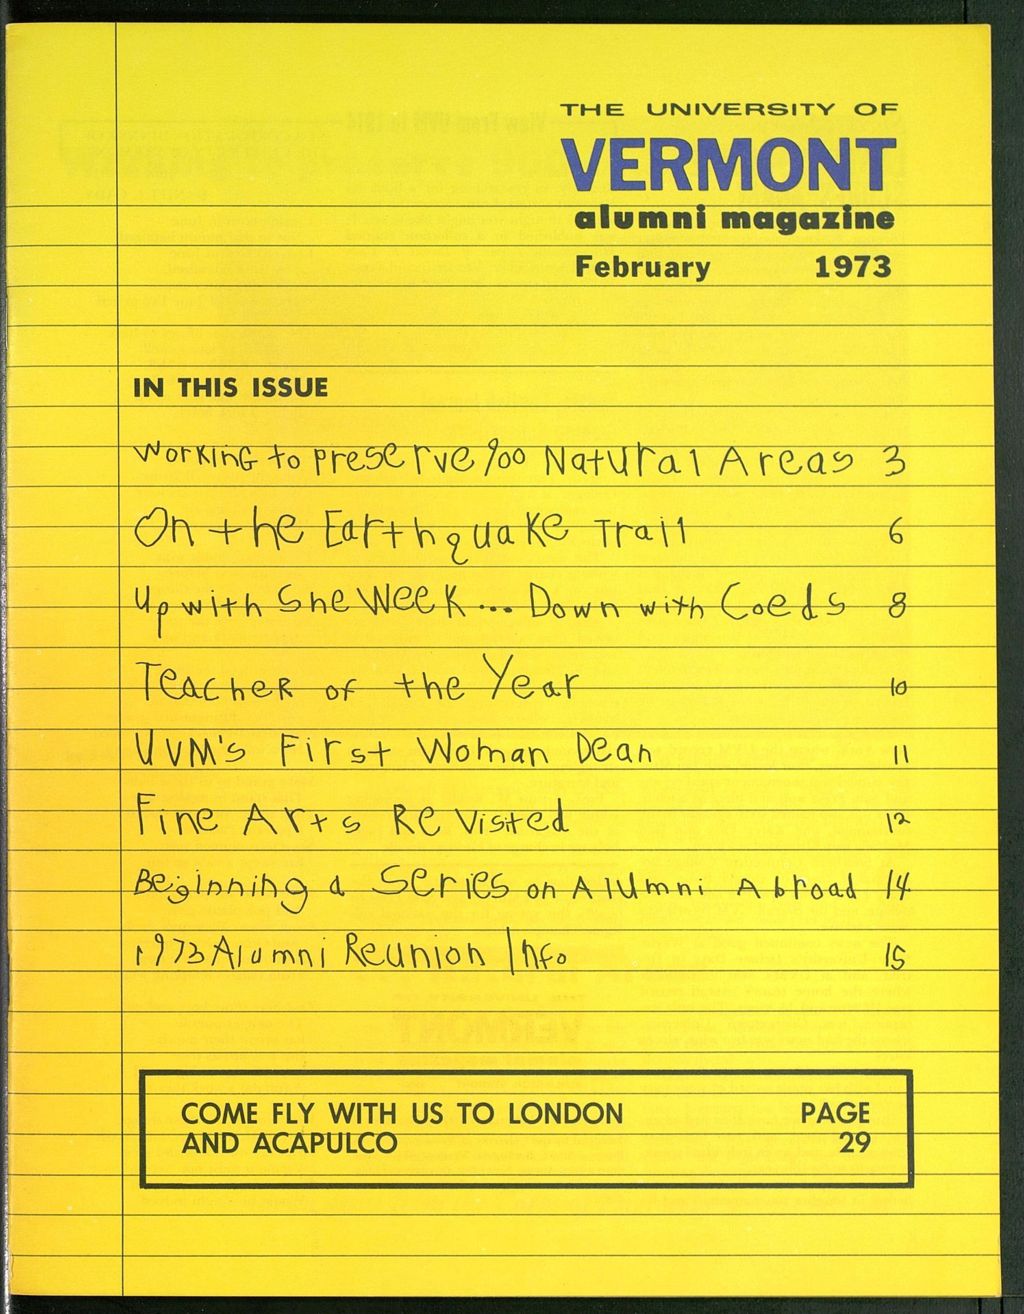 THE UNIVERSITY OF
VERMONT
alumni magazine
February 1973
IN THIS ISSUE
Working to preserve 900 Natural Areas 3
On the Earthquake Trail 6
Up with She Week... Down with Coeds 8
Teacher of the Year 10
UVM's First Woman Dean 11
Fine Arts Revisited 12
Beginning a Series on Alumni Abroad 14
1973 Alumni Reunion Info 15
COME FLY WITH US TO LONDON PAGE
AND ACAPULCO 29